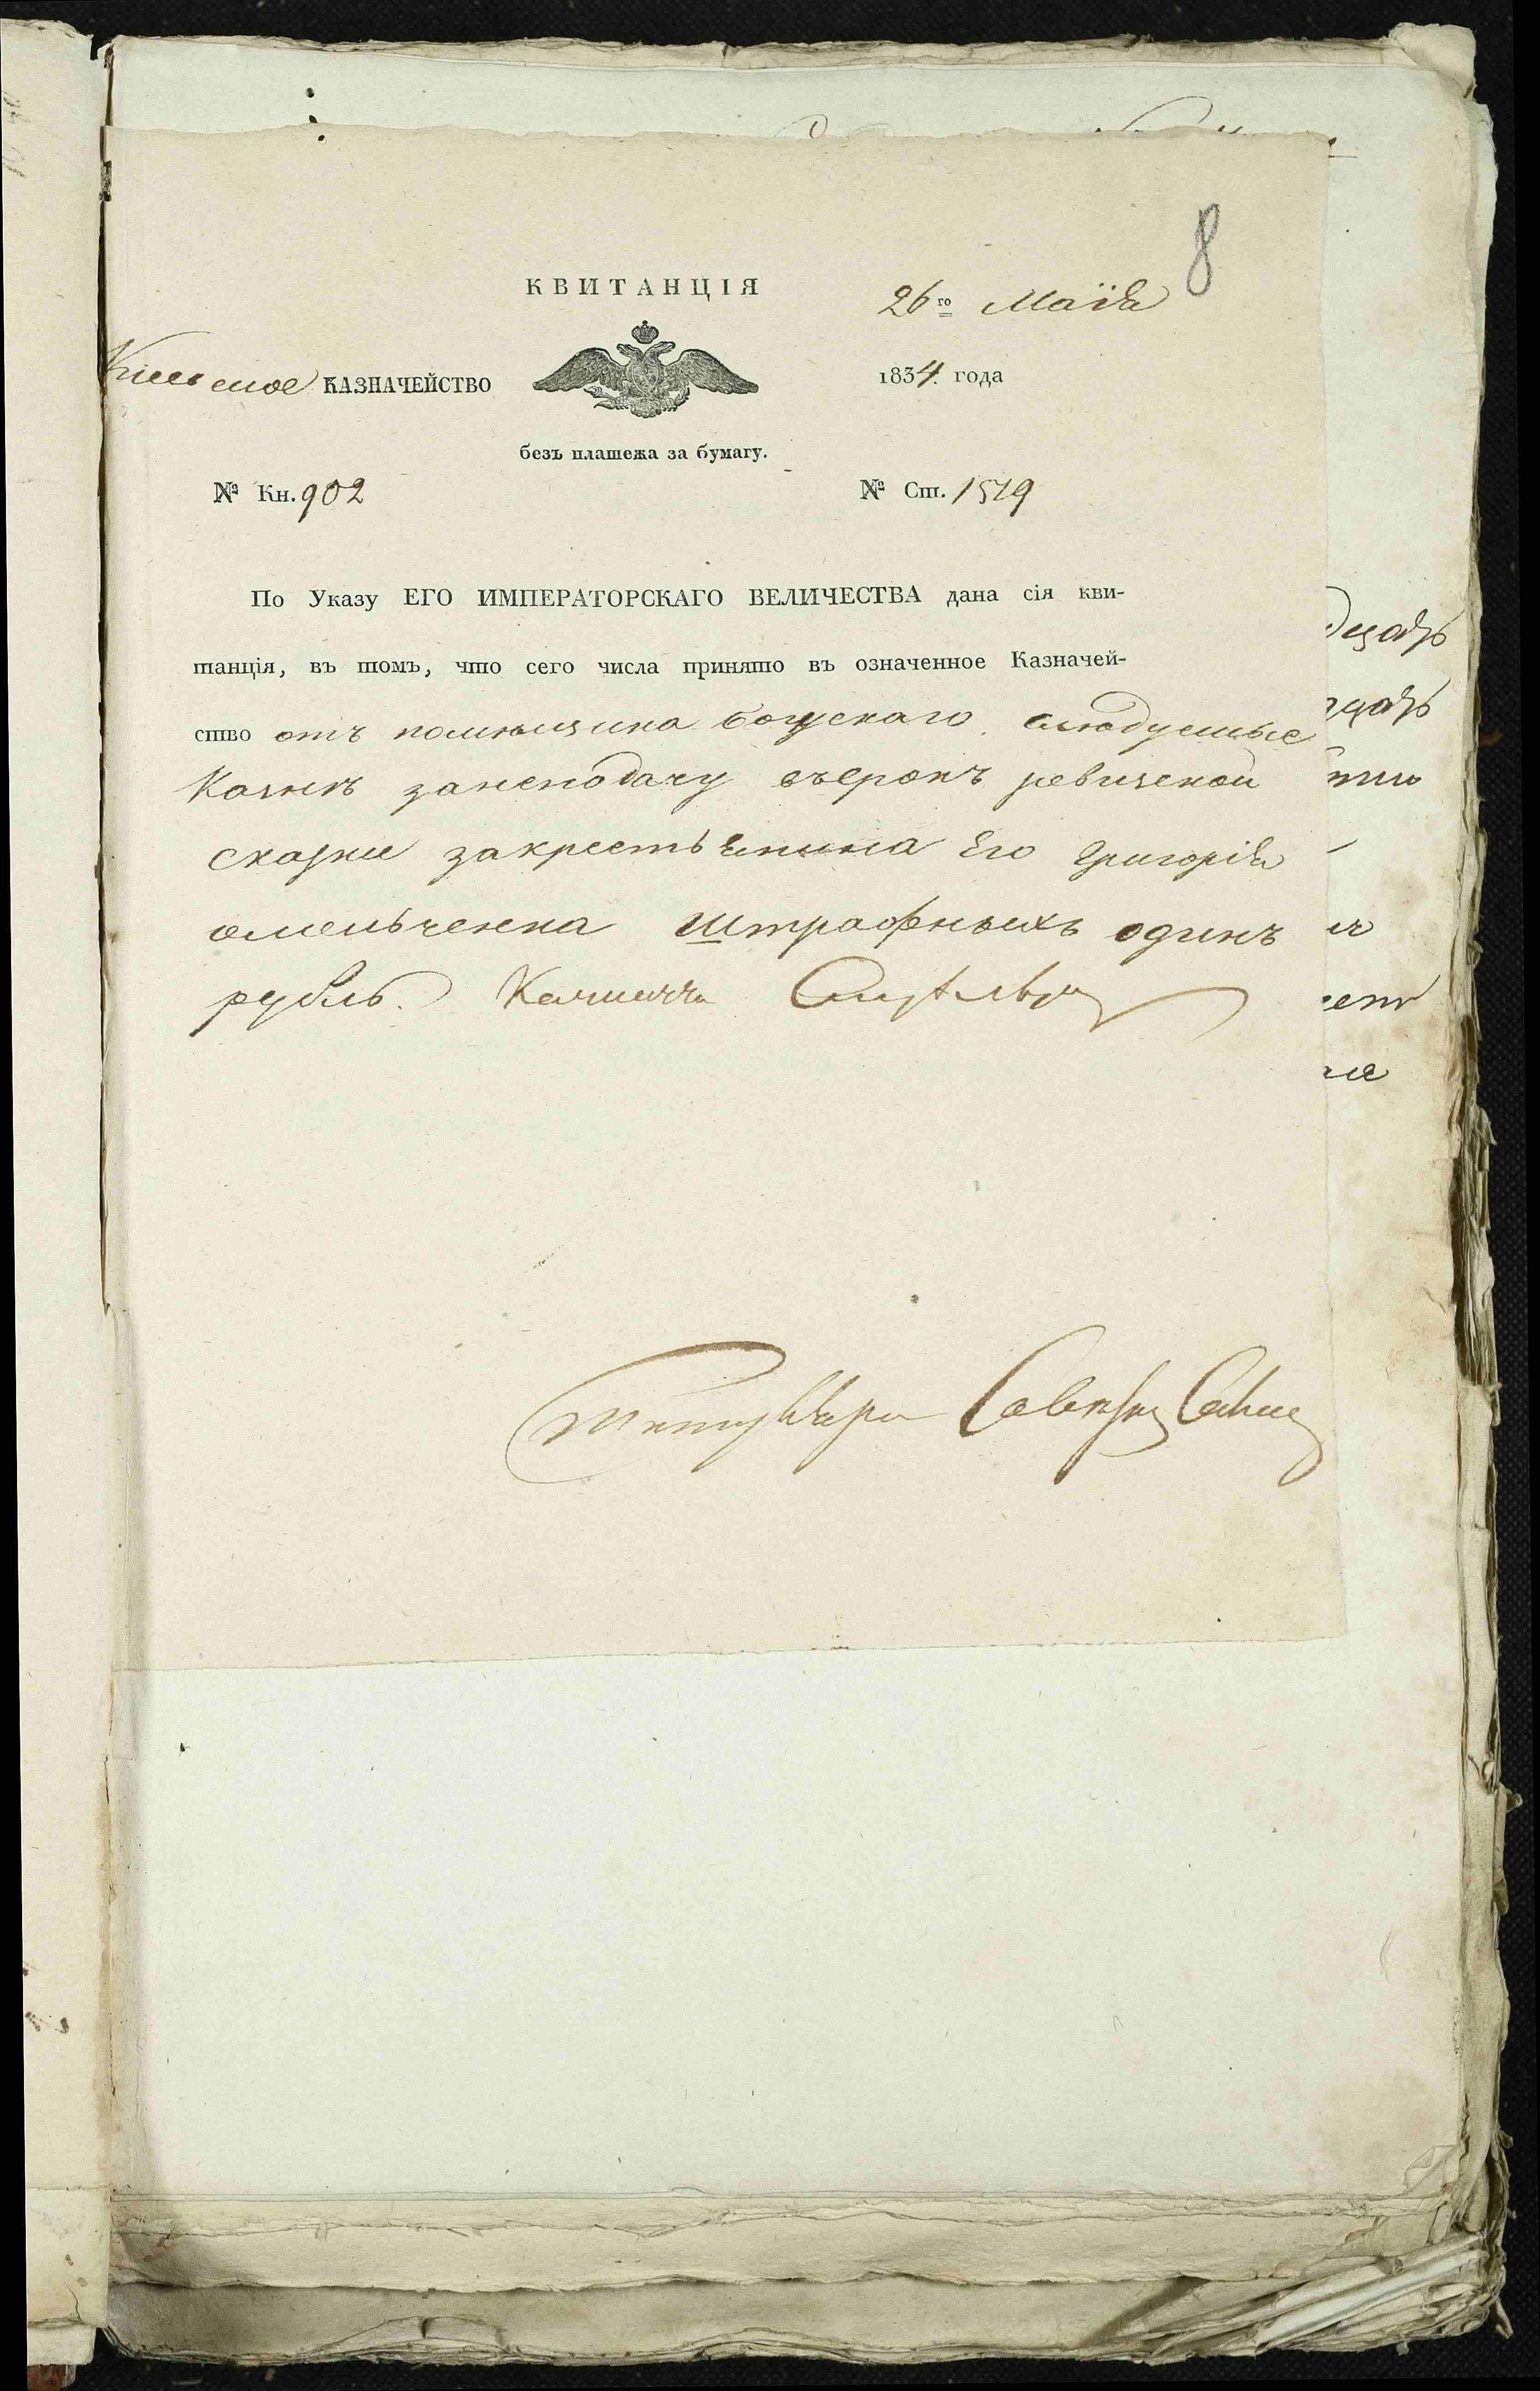 8
КВИТАНЦІЯ
26го Маія
КАЗНАЧЕЙСТВО
1834. года
безъ платежа за бумагу.
№ Кн. 902
№ Ст. 1519
По Указу ЕГО ИМПЕРАТОРСКАГО ВЕЛИЧЕСТВА дана сія кви-
танція, въ томъ, что сего числа принято въ означенное Казначей-
ство отъ помѣщика следуемые
Казнѣ занеподачу въсрокъ ревизской
сказки закрестьянина Его Григорія
омельченка штрафныхъ одинъ
рубль.